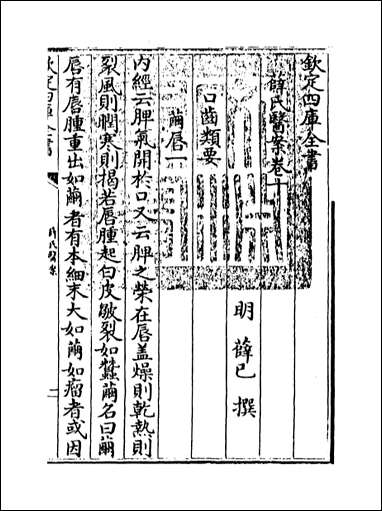 欽定四庫全書
薛氏醫案卷十
明 薛已 撰
口齒類要
繭唇一
内經云脾氣開於口又云脾之榮在唇盖燥則乾熱則
裂風則瞤寒則揭若唇腫起白皮皺裂如蠶繭名曰繭
唇有唇腫重出如繭者有本細末大如繭如瘤者或因
欽定四庫全書
薛氏醫案